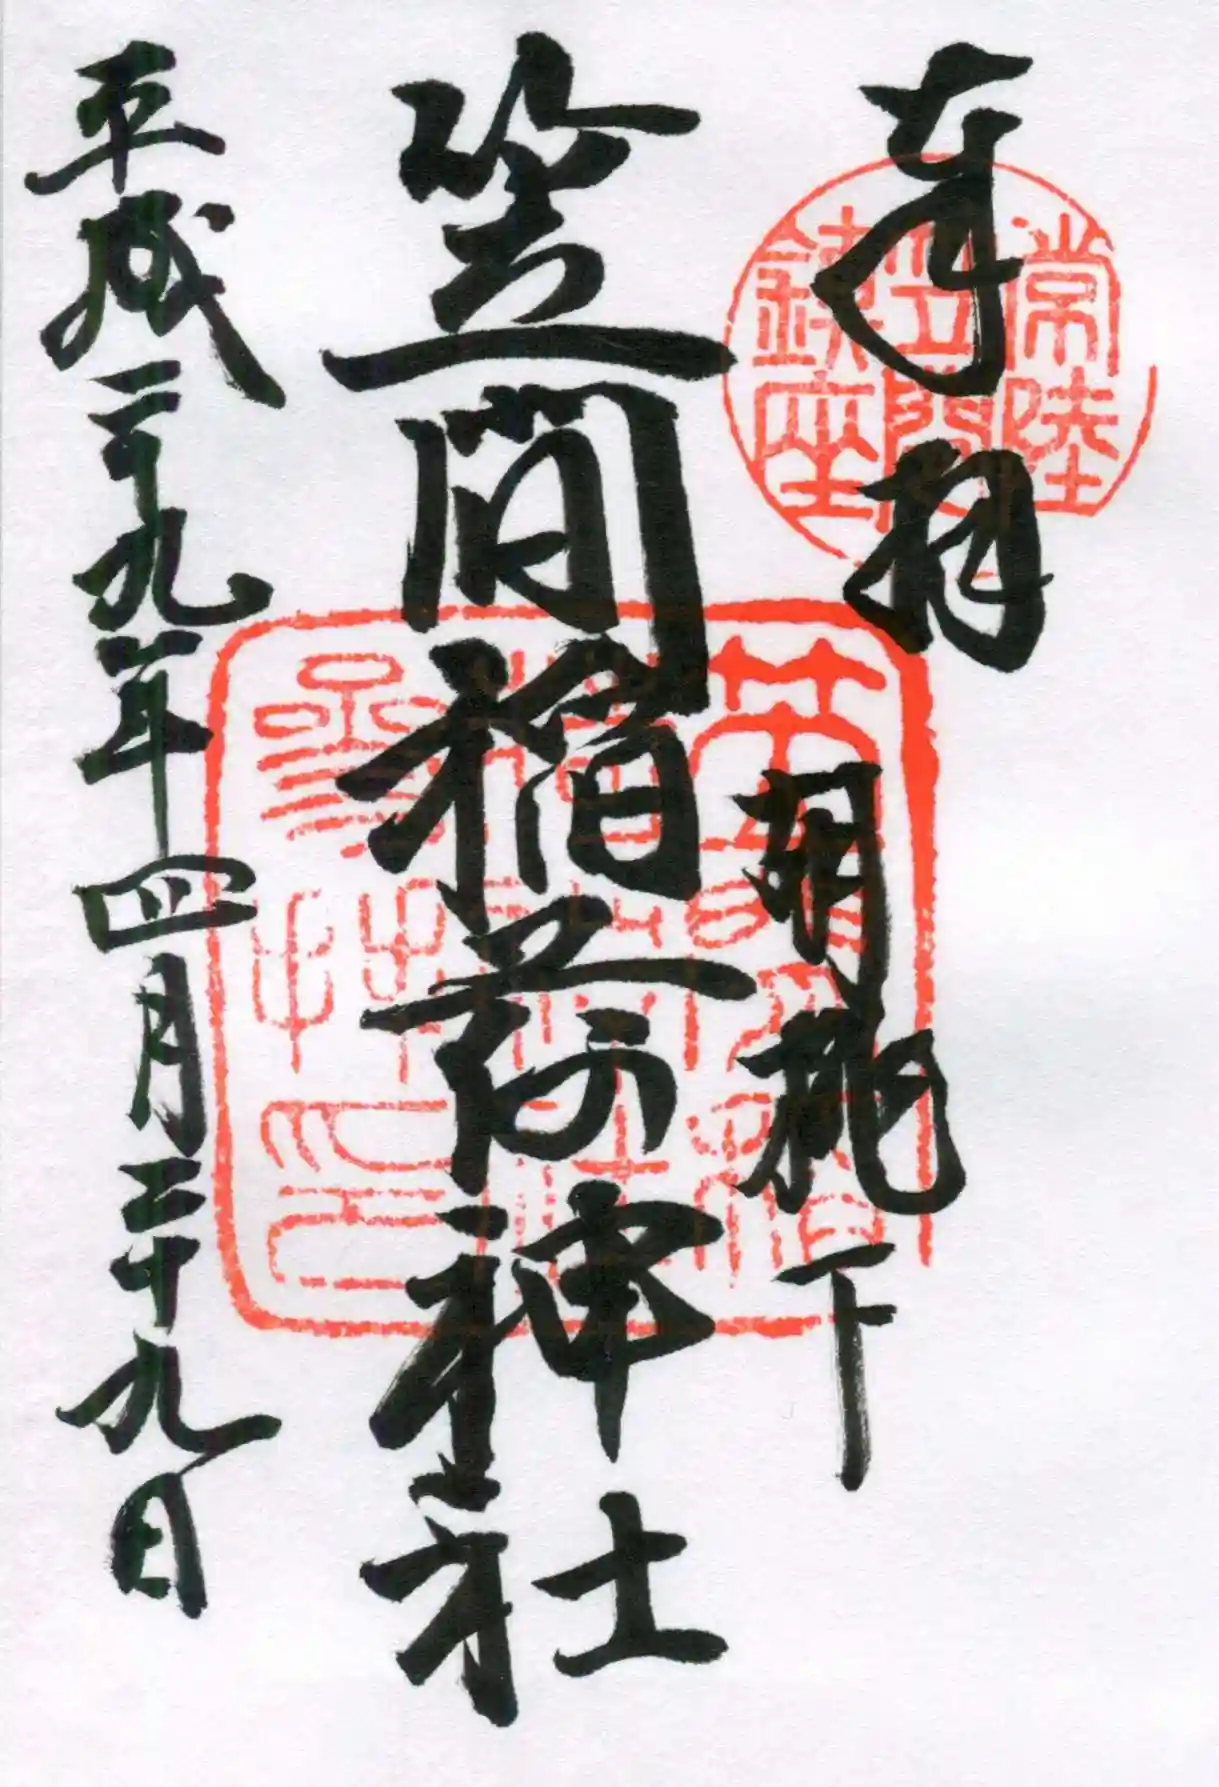 奉拝
胡桃下
笠間稲荷神社
平成二十九年四月二十九日
常陸
笠間
鎮座